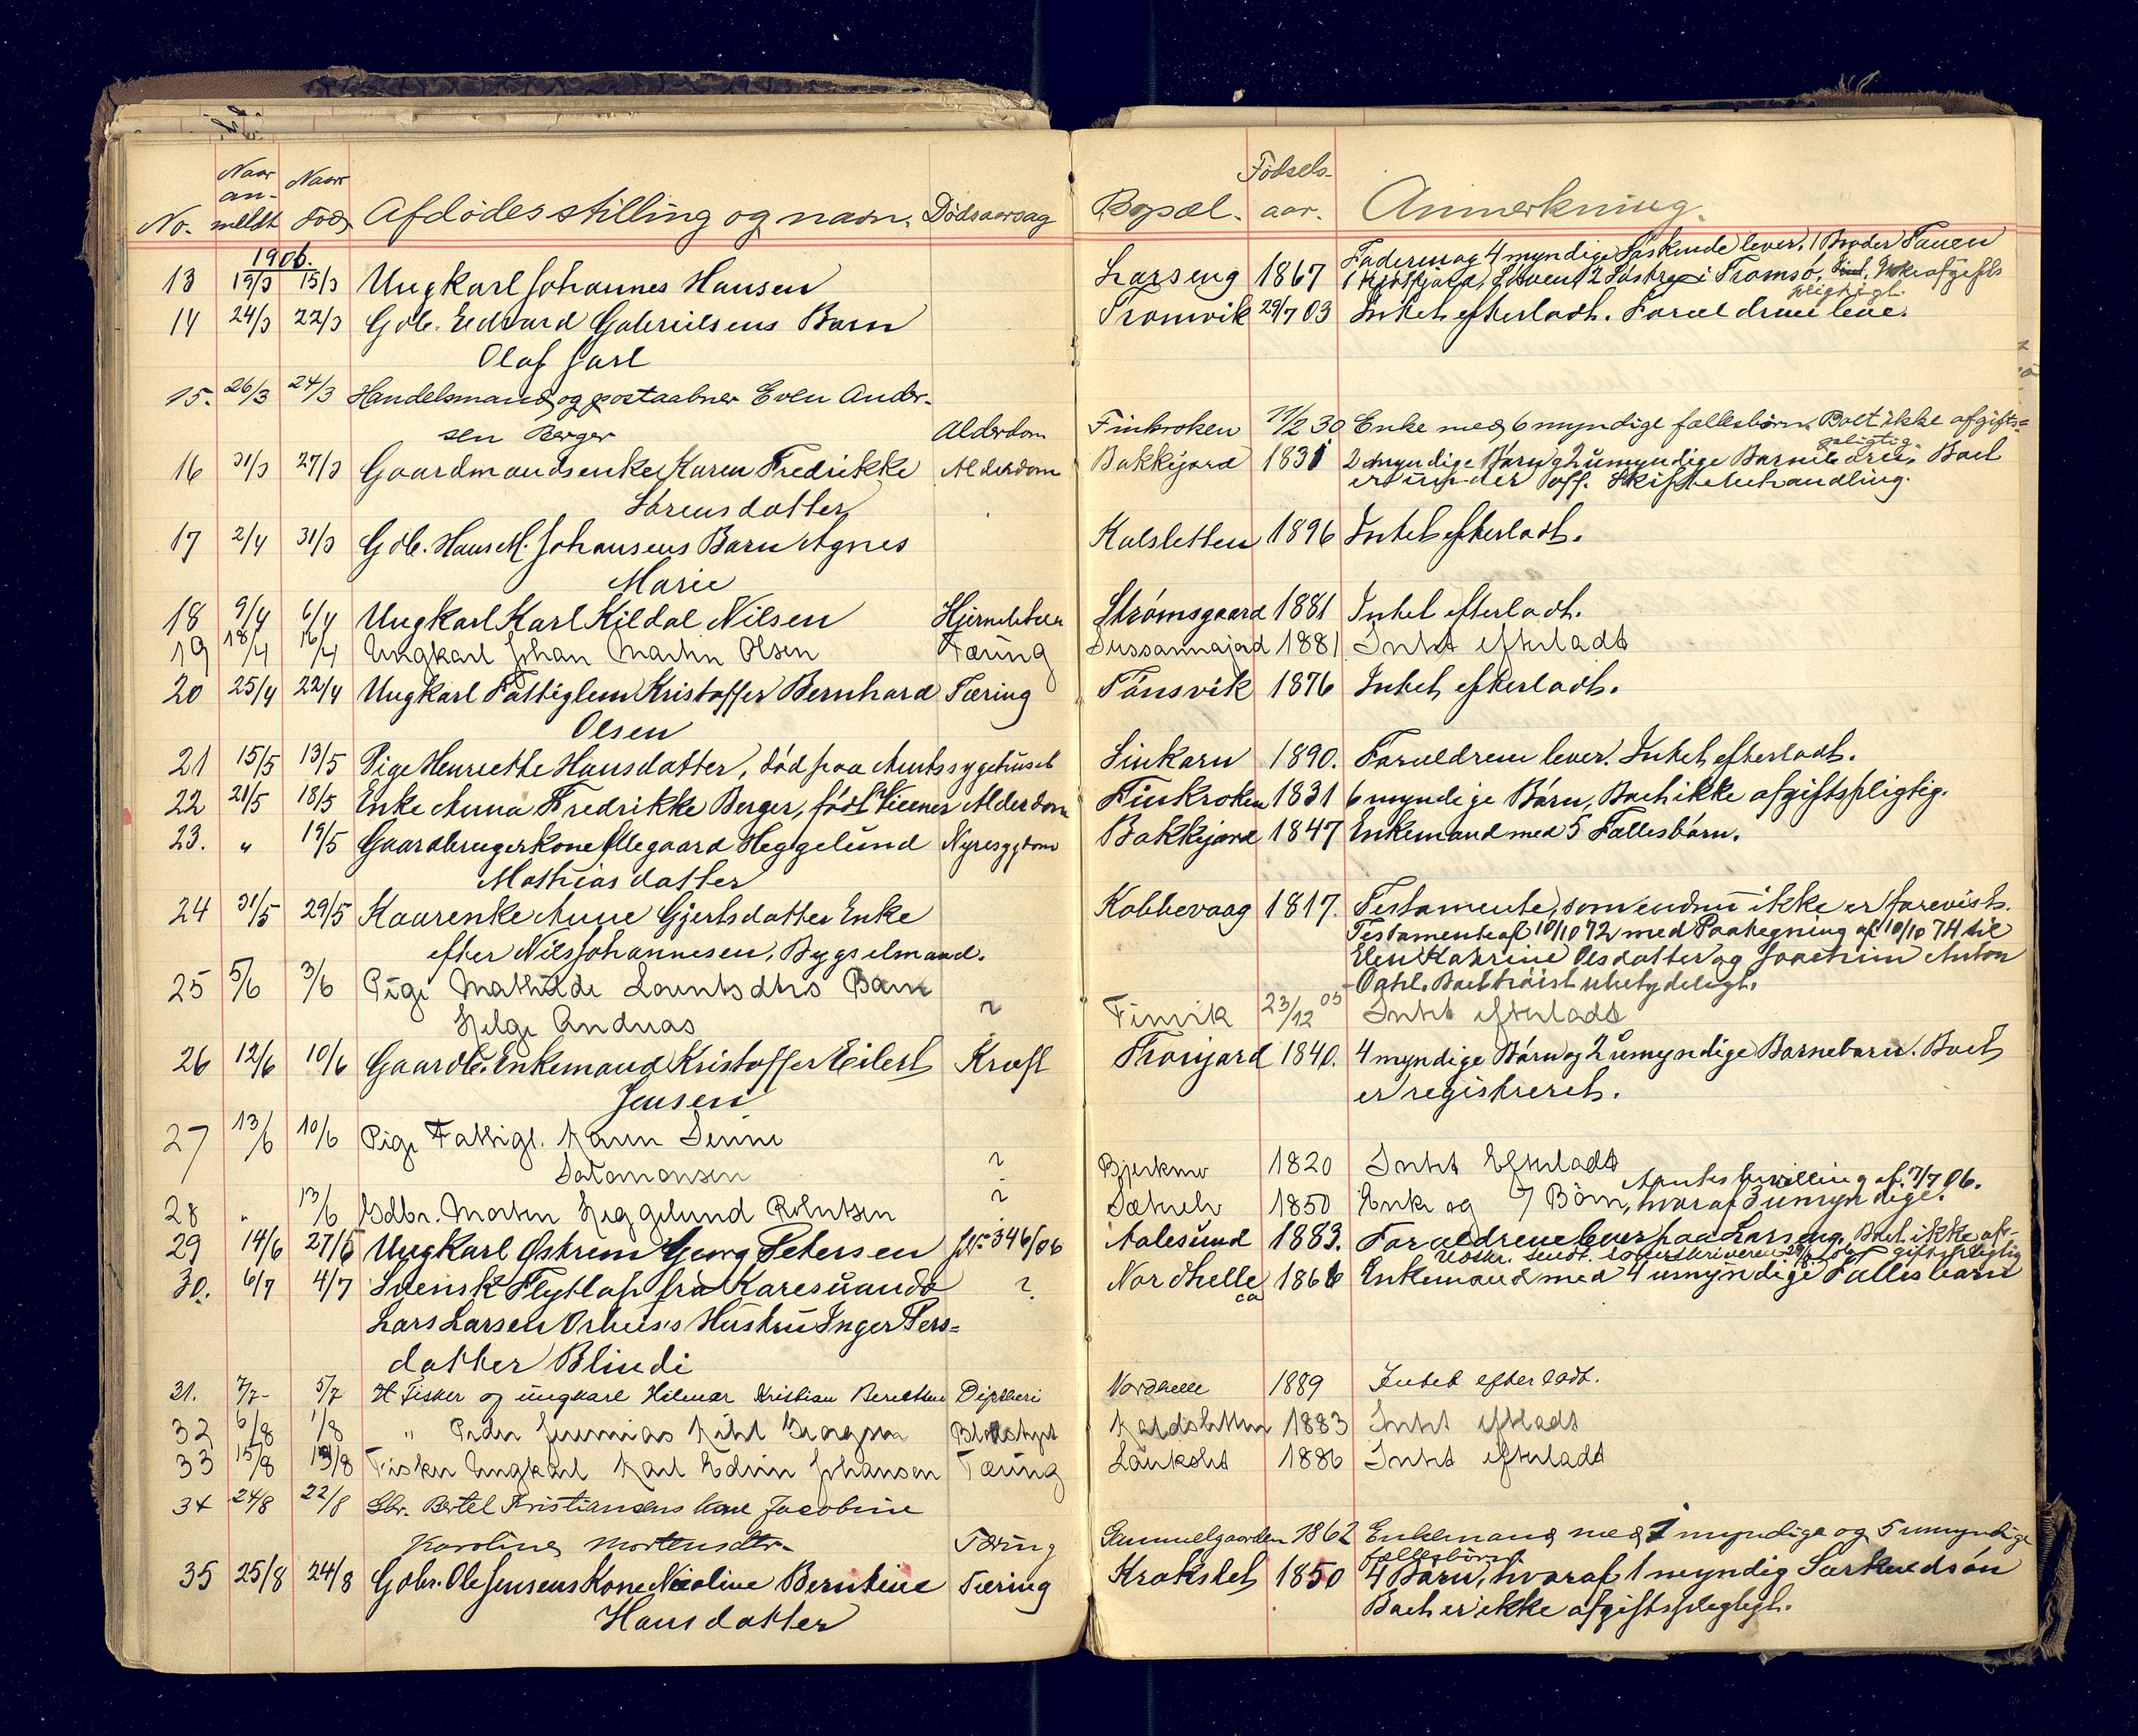 No. Naar an- meldt Naar død Afdødes stilling og navn. Dødsaarsag Bopæl. Fødsels- aar. Anmerkning.
1906.
13 19/3 15/3 Ungkarl Johannes Hansen Larseng 1867 Faderen og 4 myndige Søskende lever. 1 Broder
i Tromsø. Ikke afgifts
pligtigt.
14 24/3 22/3 Gdb. Edvard Gabrielsens Barn Tromvik 29/7 03 Intet efterladt. Forældrene leve.
Olaf Jarl
15. 26/3 24/3 Handelsmand og postaabner Even Ander-
sen Berger Alderdom Finkroken 11/2 30 Enke med 6 myndige fællesbørn. Boet ikke afgifts-
pligtig.
16 31/3 27/3 Gaardmandsenke Karen Fredrikke Alderdom Bakkejord 1831 2 myndige Børn og 2 umyndige Barnebørn. Boet
er under off. Skiftebehandling.
Sørensdatter
17 2/4 31/3 Gdb. Hans M. Johansens Barn Agnes Kalsletten 1896 Intet efterladt.
Marie
18 9/4 6/4 Ungkarl Karl Kildal Nilsen Strømsgaard 1881 Intet efterladt.
19 18/4 16/4 Ungkarl Johan Martin Olsen Tæring Sussannajord 1881 Intet efterladt
20 25/4 22/4 Ungkarl Fattiglem Kristoffer Bernhard Tæring Tønsvik 1876 Intet efterladt.
Olsen
21 15/5 13/5 Pige Henriette Hansdatter, død paa Amtssygehuset Sinkarn 1890. Forældrene lever. Intet efterladt.
22 21/5 18/5 Enke Anna Fredrikke Berger, født Alderdom Finkroken 1831 6 myndige Børn, Boet ikke afgiftspligtig.
23. " 19/5 Gaardbrugerkone Ollegaard Heggelund Nyresygdom Bakkejord 1847 Enkemand med 5 Fællesbørn.
Mathiasdatter
24 31/5 29/5 Kaarenke Anne Gjertsdatter Enke Kobbevaag 1817. Testamente, som endnu ikke er forevist.
Testamente af 10/10 72 med Paategning af 10/10 74 til
efter Nils Johannesen, Bygselmand. Elen Katrine Olsdatter og Joachim Anton
Boet høist ubetydeligt.
25 5/6 3/6 Pige Mathilde Lorentsdtrs Barn
Helge Andreas ? Finvik 23/12 05 Intet efterladt
26 12/6 10/6 Gaardb. Enkemand Kristoffer Eilert Kræft Tronjord 1840. 4 myndige Børn og 2 umyndige Barnebørn. Boet
Jensen er registreret.
27 13/6 10/6 Pige Fattigl. Karen
Salamonsen ? Bjerkmo 1820 Intet Efterladt
Amtsbevilling af 7/7 06.
28 " 13/6 Gdbr. Morten Heggelund Robertsen ? Sætrelv 1850 Enke og 7 Børn, hvoraf 3 umyndige.
29 14/6 27/5 Ungkarl Østrem Georg Petersen Jr. 346/06 Aalesund 1883. Forældrene lever paa Larseng. Boet ikke af-
giftspligtig
30. 6/7 4/7 Svensk Flytlap fra Karesuando ? Nordhella 1866 Enkemand med 4 umyndige Fællesbørn
ca
Lars Larsen Hustru Inger Pers-
datter Blindi
31. 7/7- 5/7 Fisker og ungkarl Hilmar Kristian Berntsen Difteri Nordhella 1889 Intet efterladt.
32 6/8 1/8 " Peder Jeremias Kihl Georgsen Blodstyrt Kaldsletten 1883 Intet efterladt
33 15/8 13/8 Fisker Ungkarl Karl Edvin Johansen Tæring Laukslet 1886 Intet efterladt
34 24/8 22/8 Gbr. Bertel Kristiansens kone Jacobine
Karoline Mortensdtr. Tæring Sammuelgaarden 1862 Enkemand med 1 myndige og 5 umyndige
fællesbørn.
35 25/8 24/8 Gdbr. Ole Jensens Kone Nicoline Berntine Tæring Krokslet 1850 4 Børn, hvoraf 1 myndig Særkuldsøn
Hansdatter Boet er ikke afgiftspligtigt.